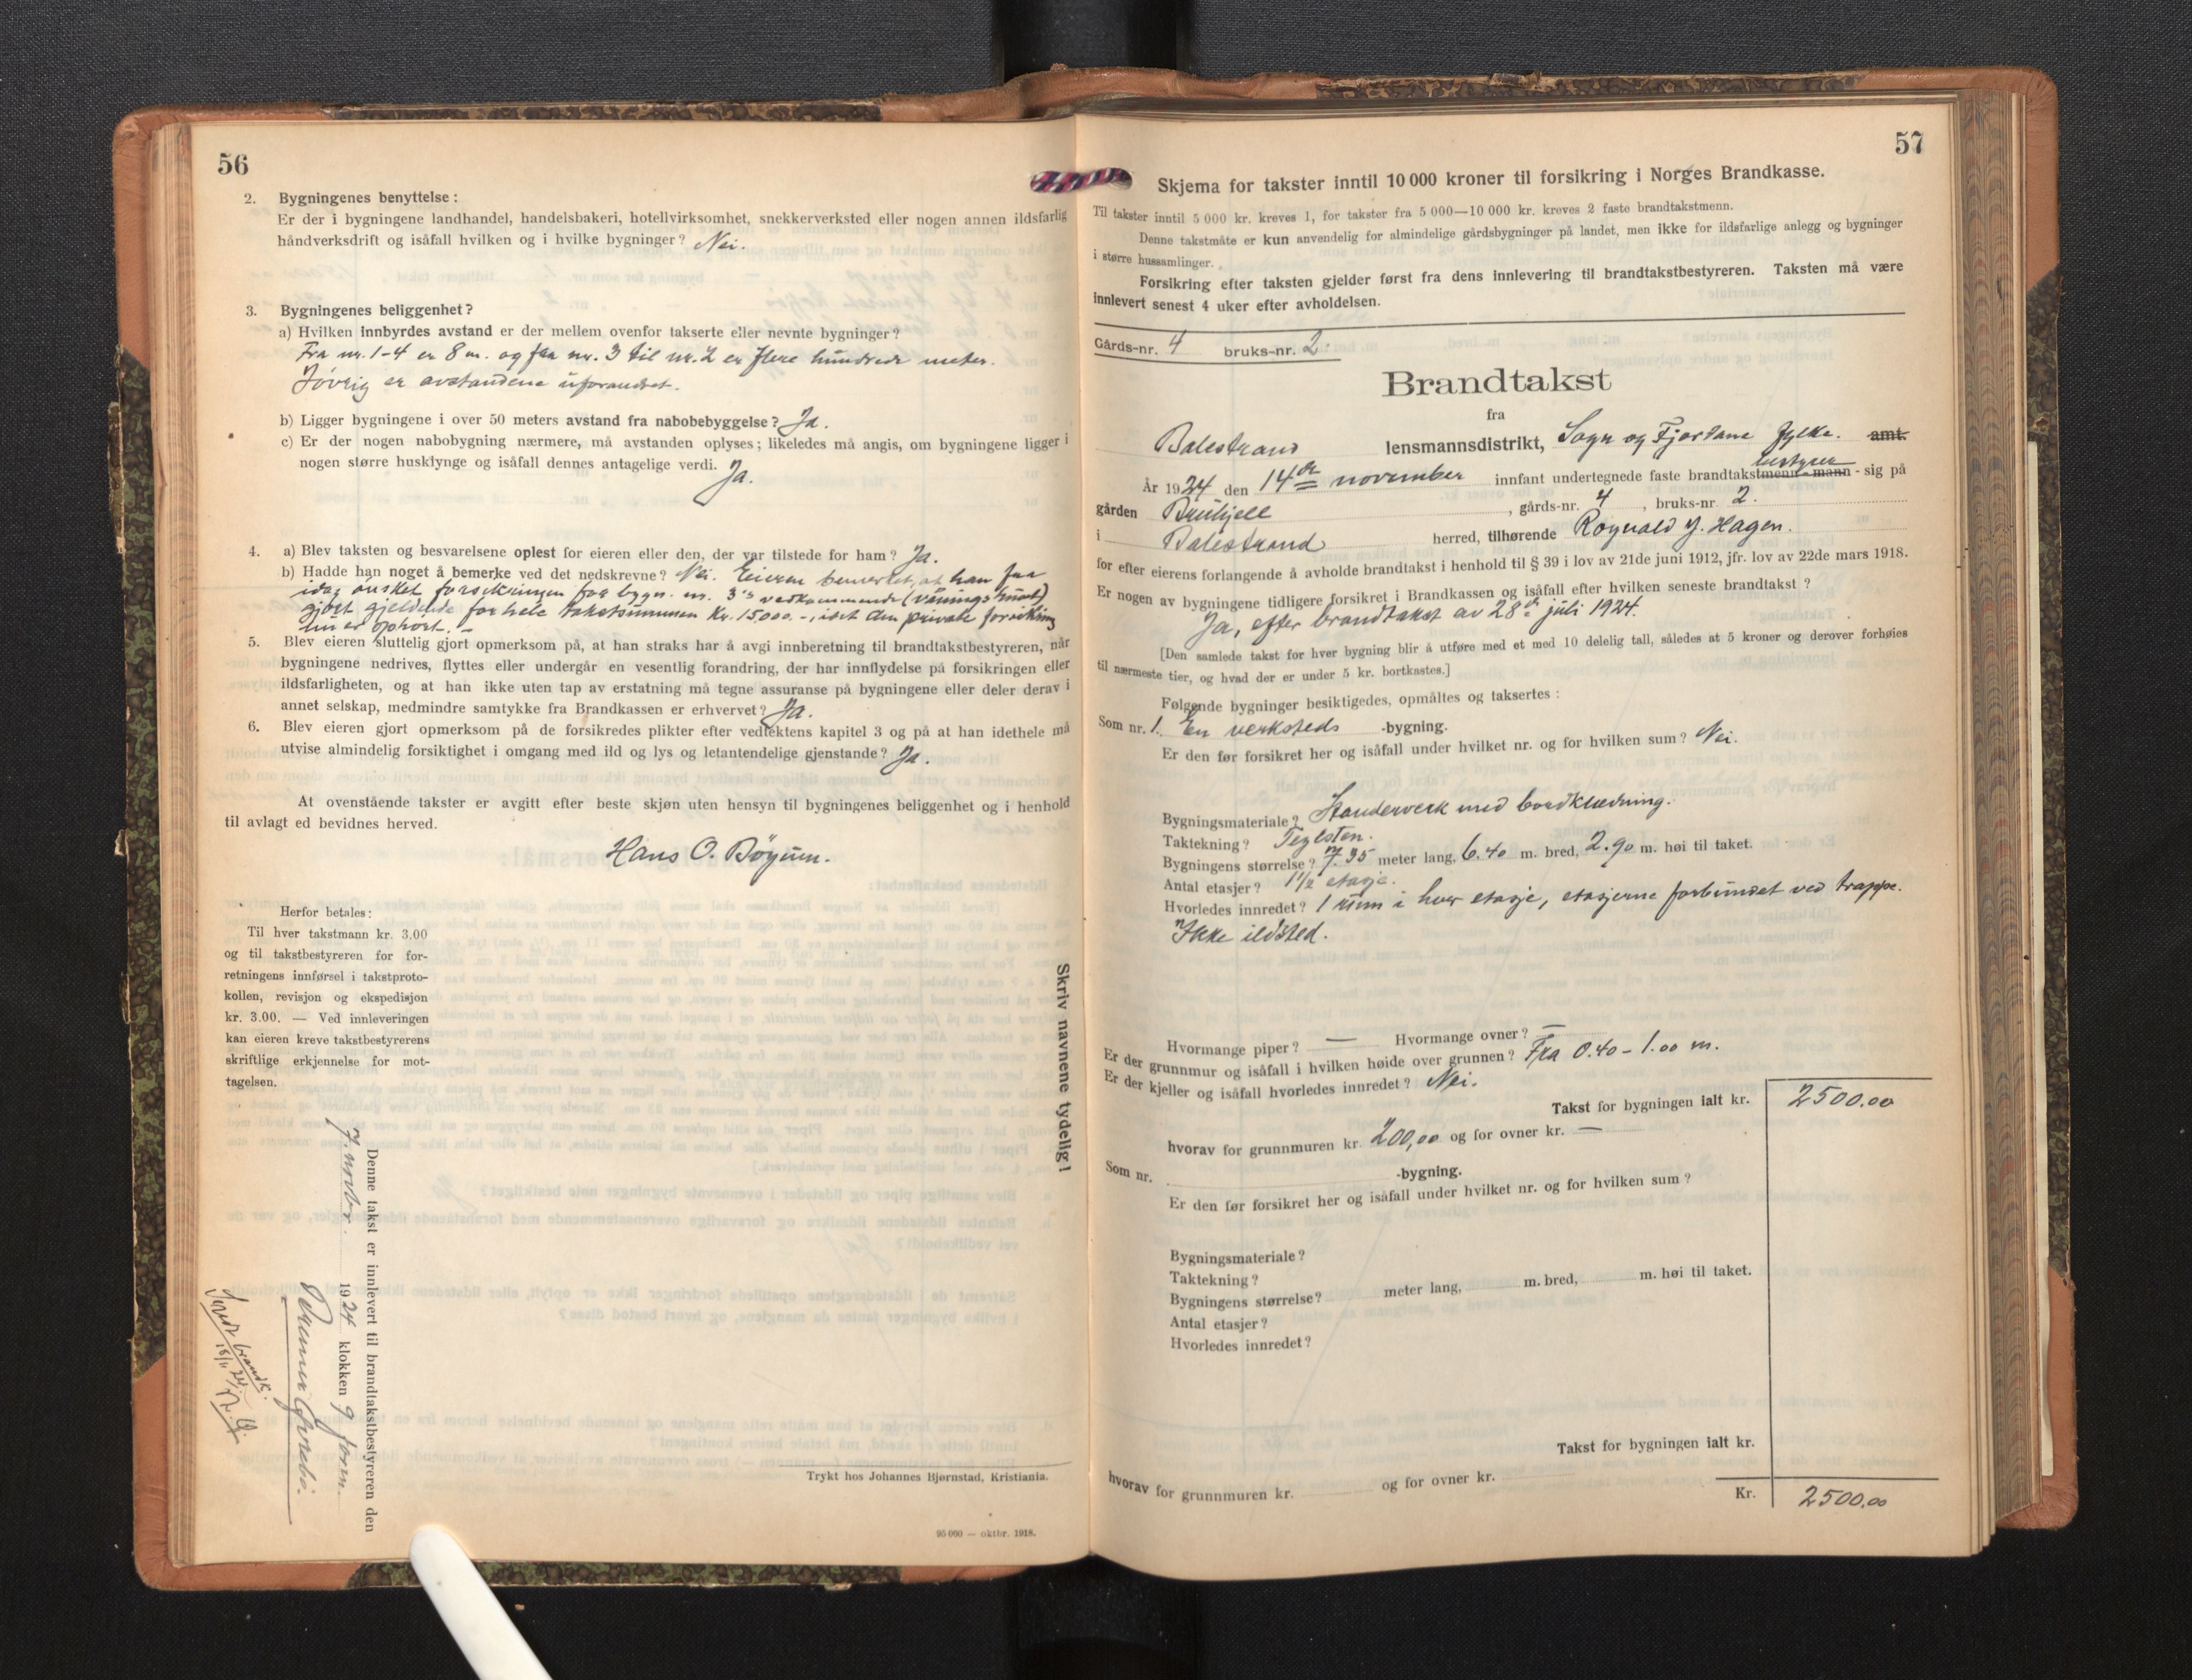 56
2. Bygningenes benyttelse :
Er der i bygningene landhandel, handelsbakeri, hotellvirksomhet, snekkerverksted eller nogen annen ildsfarlig
håndverksdrift og isåfall hvilken og i hvilke bygninger? Nei.
3. Bygningenes beliggenhet?
a) Hvilken innbyrdes avstand er der mellem ovenfor takserte eller nevnte bygninger?
Fra nr. 1-4 er 8 m. og fra nr. 3 til nr. 2 er flere hundrede meter.
Iøvrig er avstandene uforandret.
b) Ligger bygningene i over 50 meters avstand fra nabobebyggelse? Ja.
c) Er der nogen nabobygning nærmere, må avstanden oplyses; likeledes må angis, om bygningene ligger i
nogen større husklynge og isåfall dennes antagelige verdi. Ja.
4. a) Blev taksten og besvarelsene oplest for eieren eller den, der var tilstede for ham? Ja.
b) Hadde han noget å bemerke ved det nedskrevne? Nei. Eieren bemerket, at han fra
idag ønsket forsikringen for bygn. nr. 3's vedkommende (våningshuset)
gjort gjeldende for hele takstsummen Kr. 15,000.-, idet den private forsikring
nu er ophørt. -
5. Blev eieren sluttelig gjort opmerksom på, at han straks har å avgi innberetning til brandtakstbestyreren, når
bygningene nedrives, flyttes eller undergår en vesentlig forandring, der har innflydelse på forsikringen eller
ildsfarligheten, og at han ikke uten tap av erstatning må tegne assuranse på bygningene eller deler derav i
annet selskap, medmindre samtykke fra Brandkassen er erhvervet? Ja.
6. Blev eieren gjort opmerksom på de forsikredes plikter efter vedtektens kapitel 3 og på at han idethele må
utvise almindelig forsiktighet i omgang med ild og lys og letantendelige gjenstande? Ja.
At ovenstående takster er avgitt efter beste skjøn uten hensyn til bygningenes beliggenhet og i henhold
til avlagt ed bevidnes herved.
Hans O. Bøyum.
Herfor betales:
Til hver takstmann kr. 3.00
og til takstbestyreren for for-
retningens innførsel i takstproto-
kollen, revisjon og ekspedisjon
kr. 3.00. — Ved innleveringen
kan eieren kreve takstbestyrerens
skriftlige erkjennelse for mot-
tagelsen.
Skriv navnene tydelig!
Denne takst er innlevert til brandtakstbestyreren den
7. novbr. 1924 klokken 9 form.
Sendt brandk.
Trykt hos Johannes Bjørnstad, Kristiania.
95 000 — oktbr. 1918.
57
Skjema for takster inntil 10 000 kroner til forsikring i Norges Brandkasse.
Til takster inntil 5 000 kr. kreves 1, for takster fra 5 000—10 000 kr. kreves 2 faste brandtakstmenn.
Denne takstmåte er kun anvendelig for almindelige gårdsbygninger på landet, men ikke for ildsfarlige anlegg og bygninger
i større hussamlinger.
Forsikring efter taksten gjelder først fra dens innlevering til brandtakstbestyreren. Taksten må være
innlevert senest 4 uker efter avholdelsen.
Gårds-nr. 4 bruks-nr. 2.
Brandtakst
fra
Balestrand lensmannsdistrikt, Sogn og Fjordane fylke. amt.
bestyrer
År 1924 den 14de november innfant undertegnede faste brandtakstmenn - mann - sig på
gården , gårds-nr. 4 , bruks-nr. 2.
i Balestrand herred, tilhørende Rognald J. Hagen.
for efter eierens forlangende å avholde brandtakst i henhold til § 39 i lov av 21de juni 1912, jfr. lov av 22de mars 1918.
Er nogen av bygningene tidligere forsikret i Brandkassen og isåfall efter hvilken seneste brandtakst ?
Ja, efter brandtakst av 28de juli 1924.
[Den samlede takst for hver bygning blir å utføre med et med 10 delelig tall, således at 5 kroner og derover forhøies
til nærmeste tier, og hvad der er under 5 kr. bortkastes.]
Følgende bygninger besiktigedes, opmåltes og taksertes :
Som nr. 1. En verksteds -bygning.
Er den før forsikret her og isåfall under hvilket nr. og for hvilken sum ? Nei.
Bygningsmateriale? Standerverk med bordklædning.
Taktekning? Teglsten.
Bygningens størrelse? 7.35 meter lang, 6.40 m. bred, 2.90 m. høi til taket.
Antal etasjer? 1 1/2 etasje.
Hvorledes innredet? 1 rum i hver etasje, etasjerne forbundet ved trappe.
Ikke ildsted.
Hvormange piper? — Hvormange ovner? —
Er der grunnmur og isåfall i hvilken høide over grunnen? Fra 0.40 - 1.00 m.
Er der kjeller og isåfall hvorledes innredet? Nei.
Takst for bygningen ialt kr. 2500.00
hvorav for grunnmuren kr. 200,00 og for ovner kr. —
Som nr. -bygning.
Er den før forsikret her og isåfall under hvilket nr. og for hvilken sum ?
Bygningsmateriale?
Taktekning?
Bygningens størrelse? meter lang, m. bred, m. høi til taket.
Antal etasjer?
Hvorledes innredet?
Takst for bygningen ialt kr.
hvorav for grunnmuren kr. og for ovner kr.
Kr. 2500.00